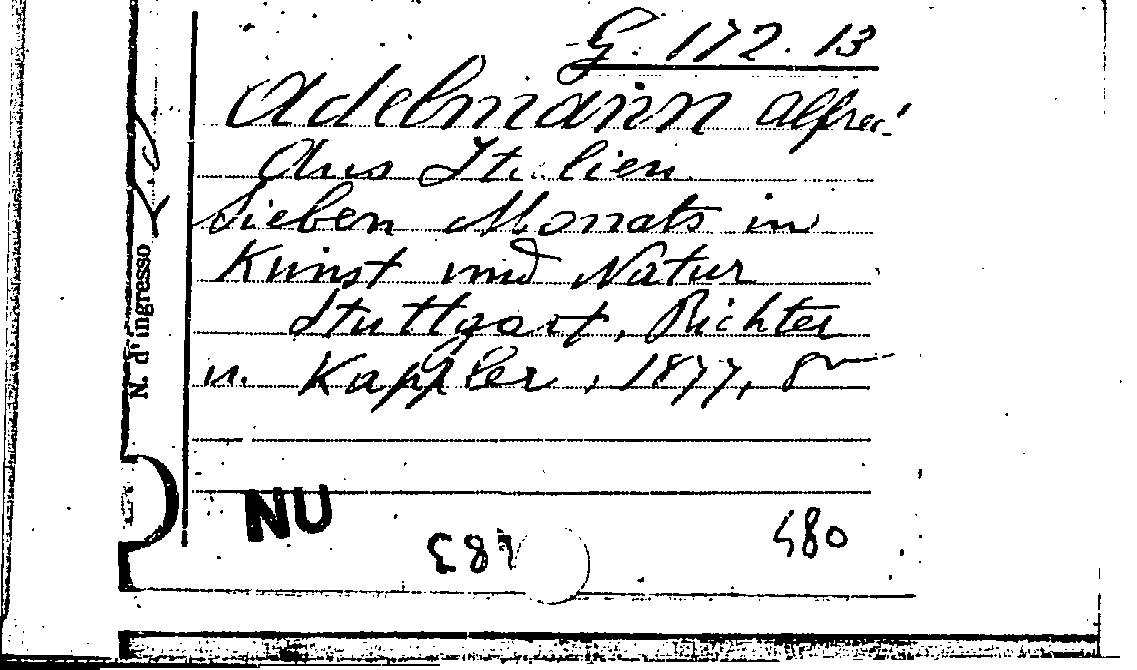 G. 172. 13
Adelmann Alfred
Aus Italien.
Sieben Monats in
Kunst und Natur
Stuttgart, Richter
u. Kappler, 1877, 8
N. d'ingresso
NU
480